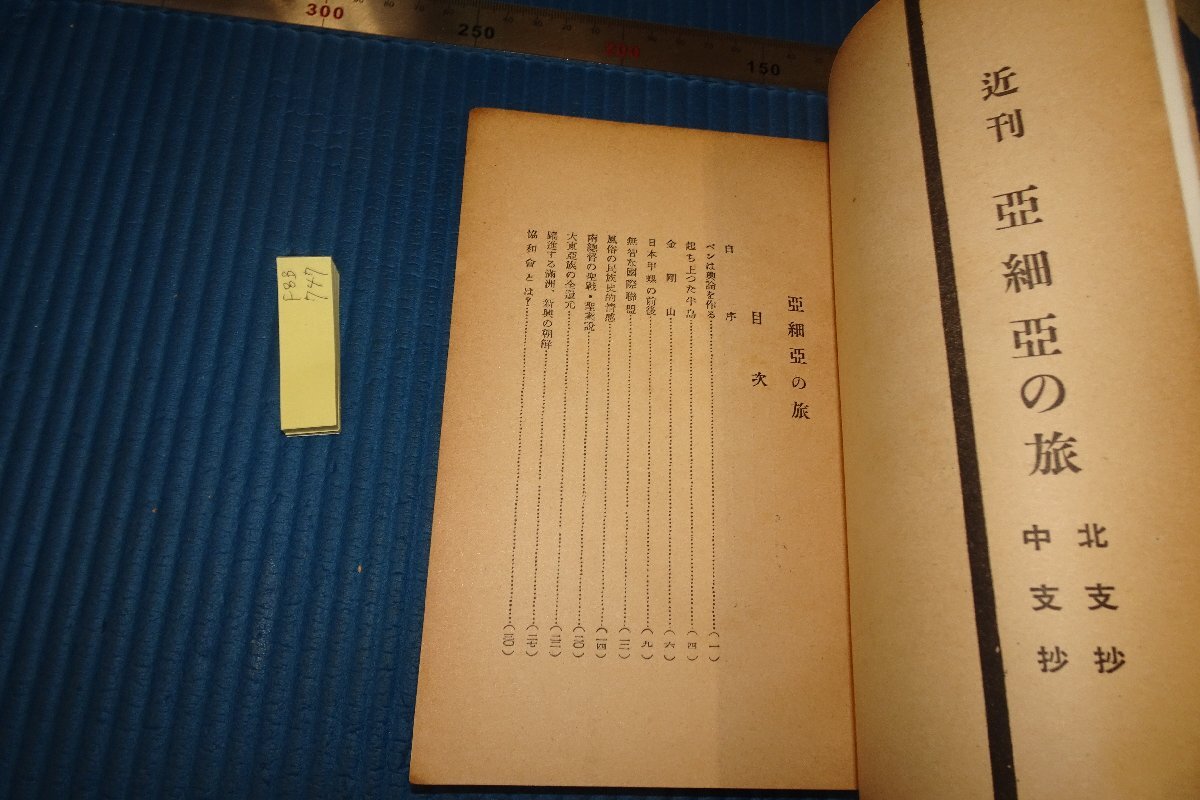 300
250
200
150
近刊 亞細亞の旅
北支抄
中支抄
亞細亞の旅
目次
自序
ペンは輿論を作る(一)
起ち上つた半島(四)
金剛山(六)
日本甲螺の前後(九)
無智な國際聯盟(一二)
風俗の民族史的情感(一四)
南總督の聖戰・聖業說(二〇)
大東亞族の全還元(二三)
躍進する滿洲、新興の朝鮮(二七)
協和會とは?(三〇)
PBB
747